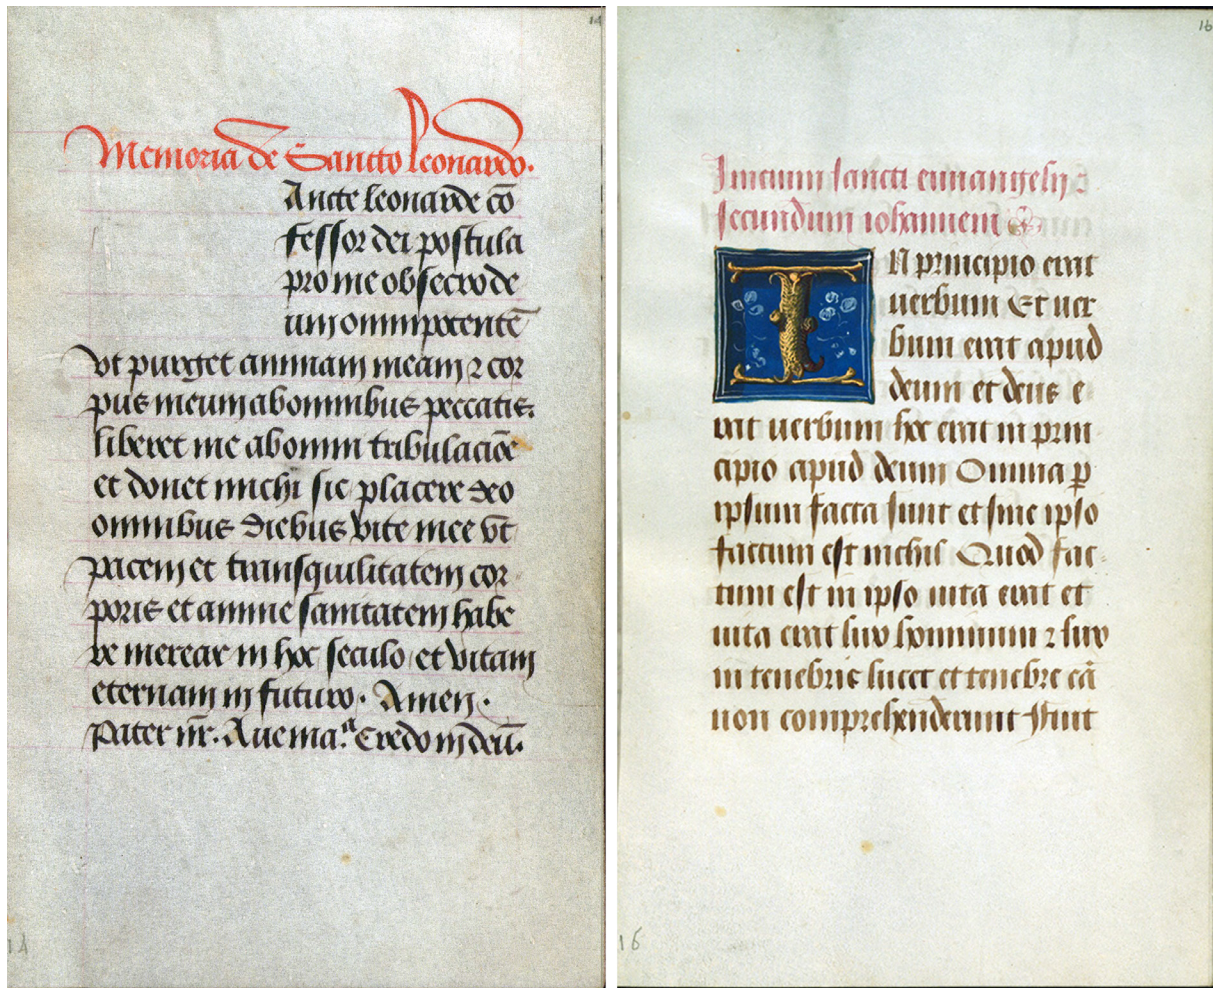 14
Memoria de Sancto Leonardo.
Ancte leonarde cō
fessor dei postula
pro me obsecro de
um omnipotentē
vt purget animam meam ⁊ cor
pus meum ab omnibus peccatis.
liberet me ab omni tribulaciōe
et donet michi sic placere deo
omnibus diebus vite mee vt
pacem et transquilitatem cor
poris et anime sanitatem habe
re merear in hoc seculo et vitam
eternam in futuro. Amen.
Pater nr̄. Aue ma.ᵃ Credo in deū.
14
16
Inicium sancti euuangelij
secundum iohannem
IN principio erat
uerbum Et uer
bum erat apud
deum et deus e
rat uerbum hoc erat in prin-
cipio apud deum Omnia ꝑ
ipsum facta sunt et sine ipso
factum est nichil Quod fac-
tum est in ipso uita erat et
uita erat lux hominum ⁊ lux
in tenebris lucet et tenebre eā
non comprehenderunt Fuit
16